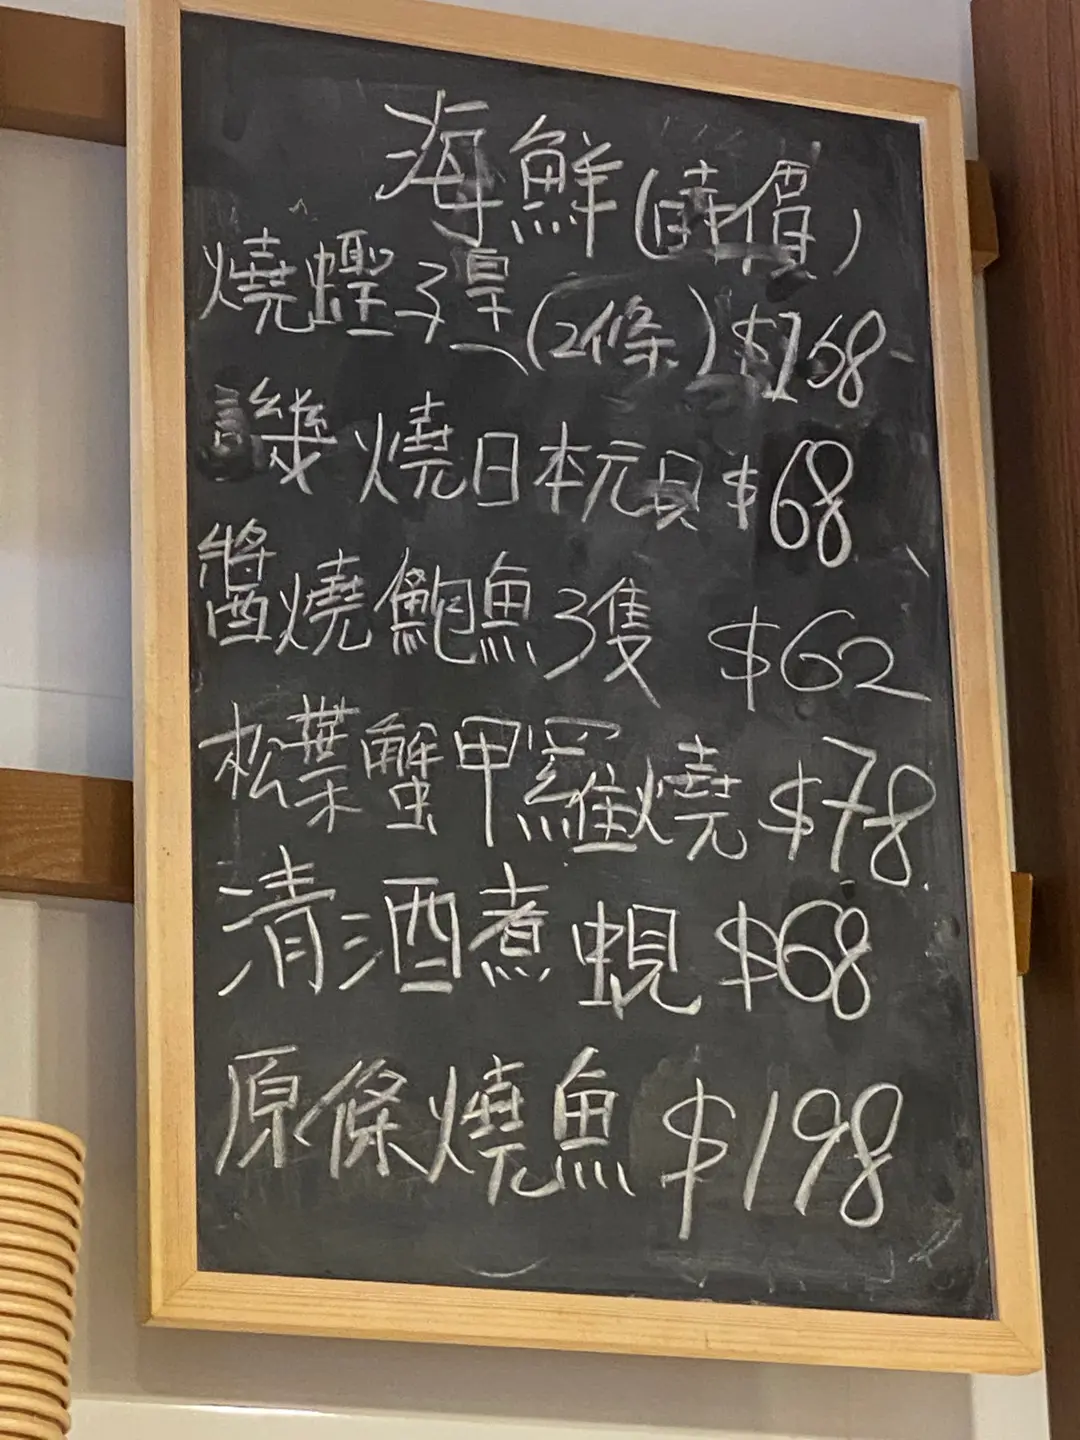 海鮮(時價)
燒蟶子皇(2條)$168
譏燒日本元貝$68
醬燒鮑魚3隻 $62
松葉蟹甲羅燒$78
清酒煮蜆$68
原條燒魚$198